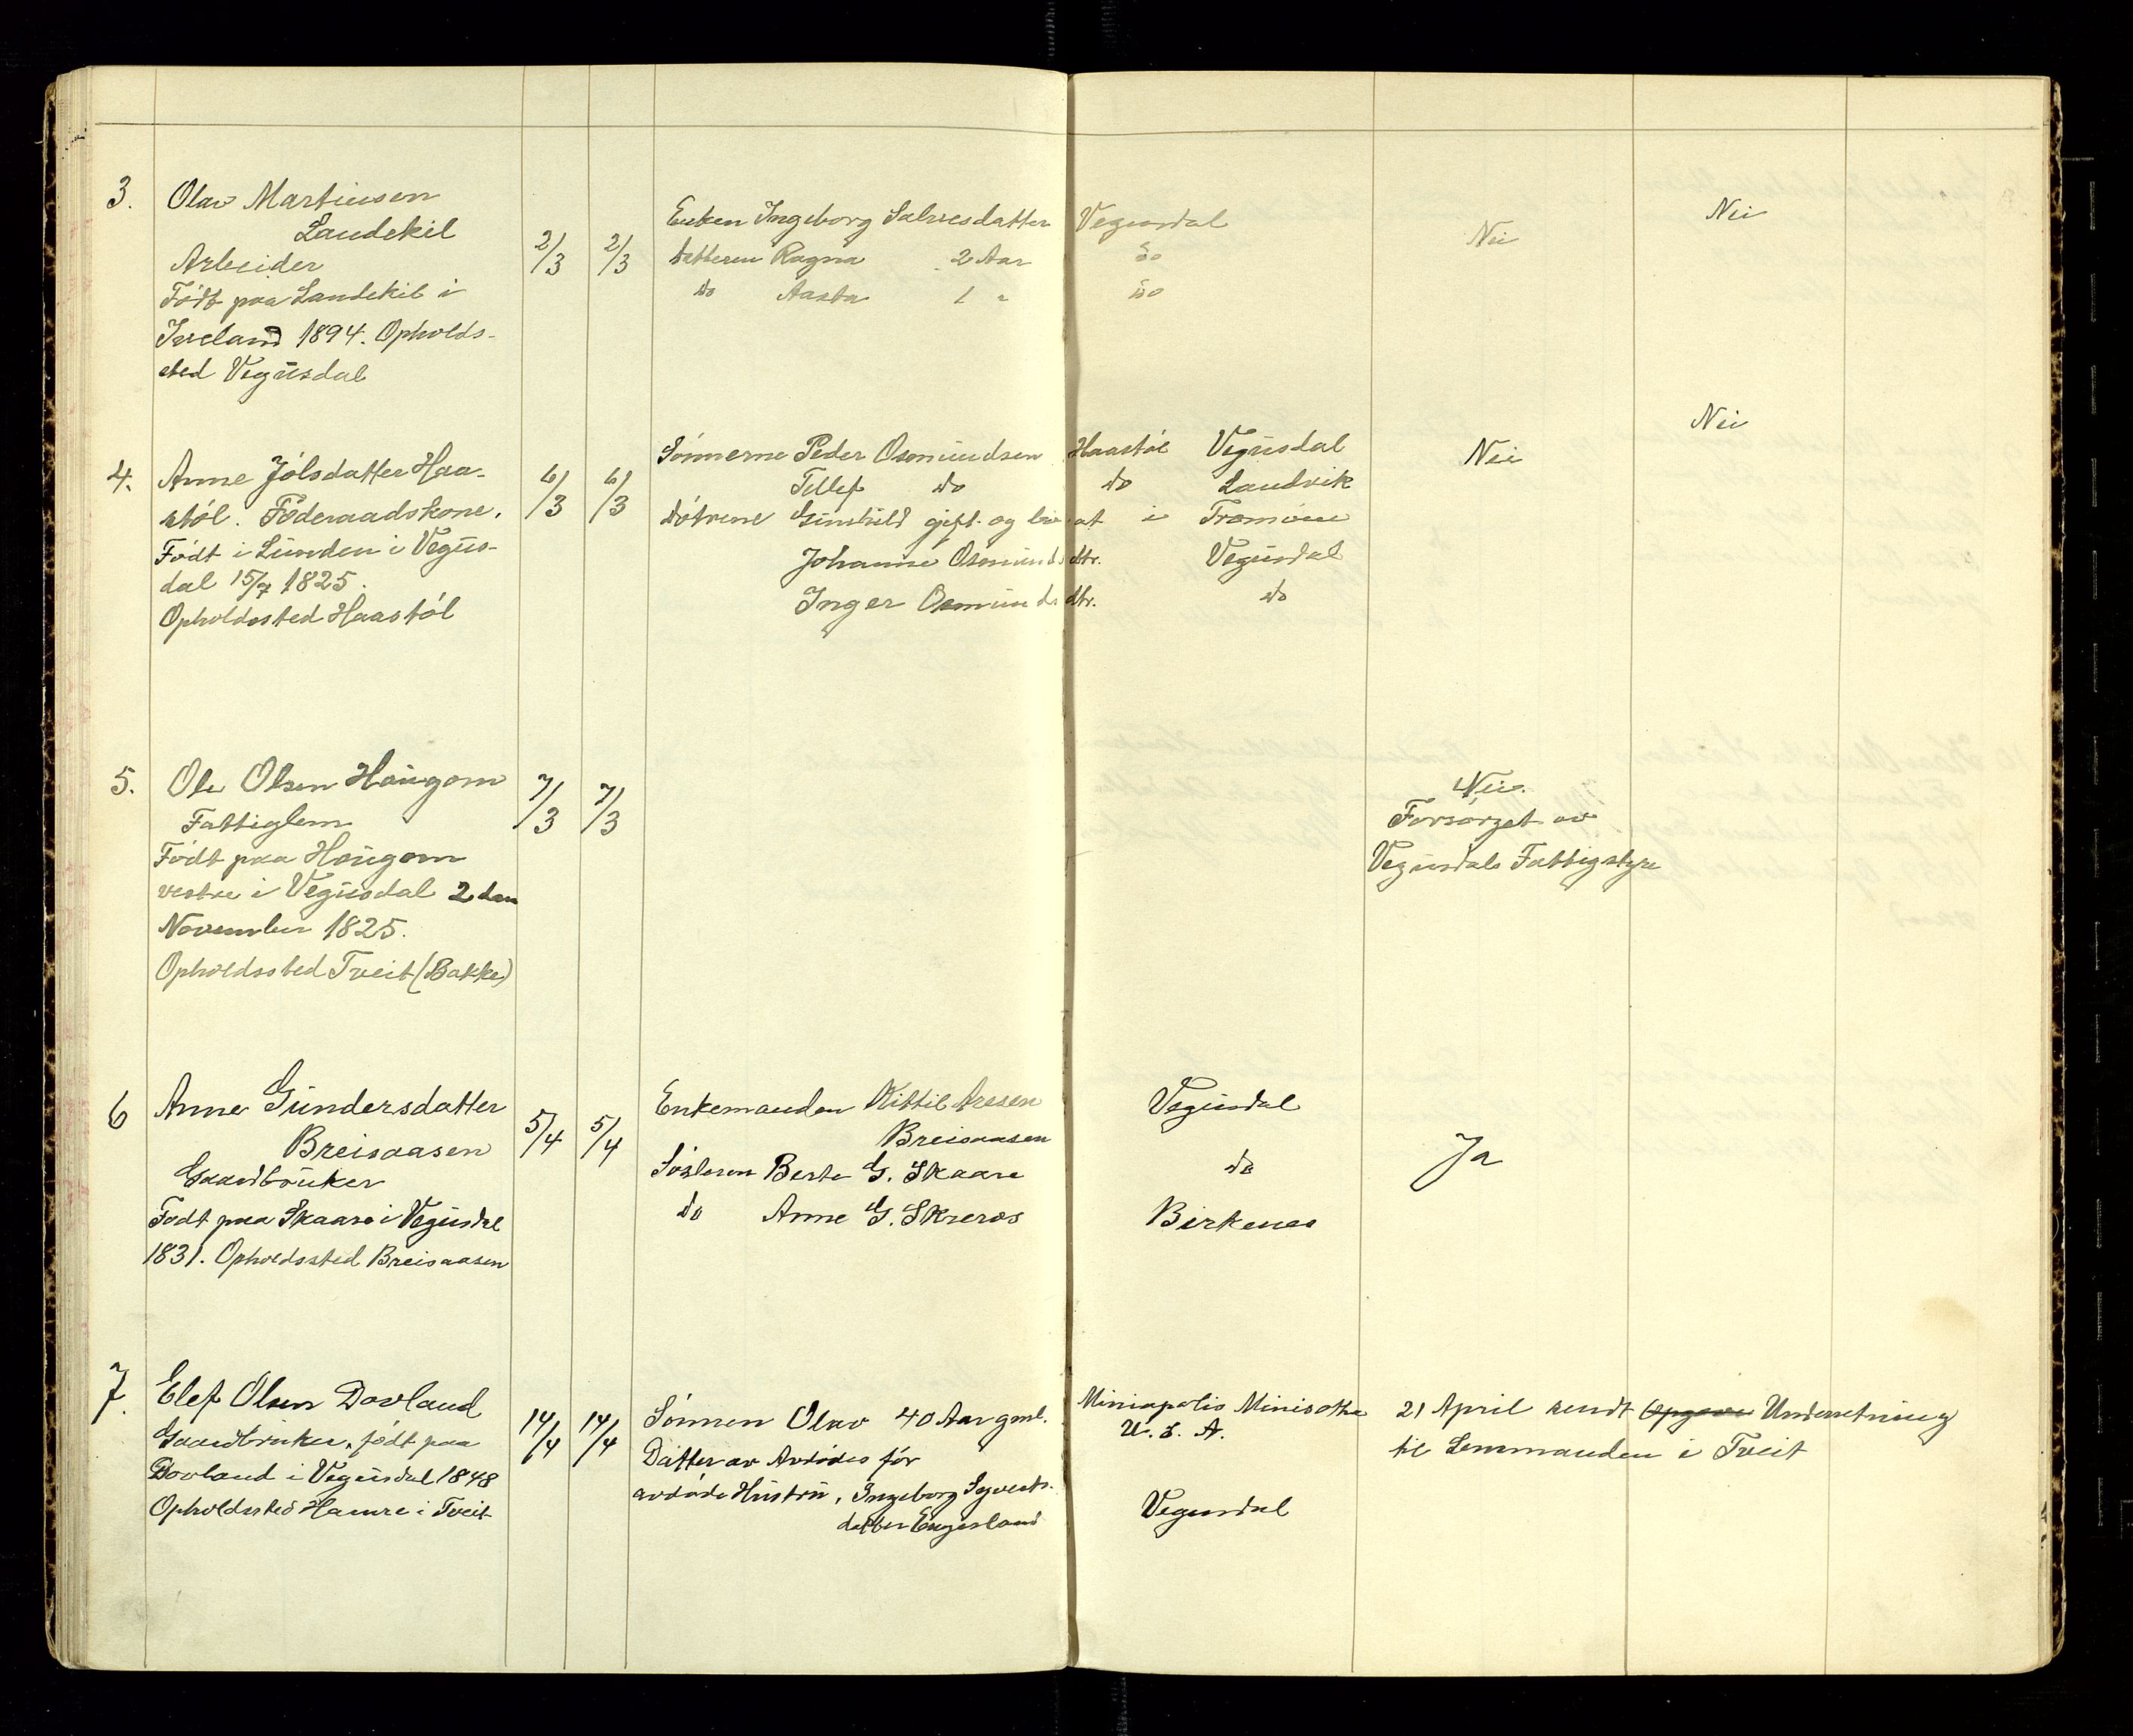 3.
Olav Martinsen
Landekil
Arbeider
Født paa Landekil i
Iveland 1894. Opholds-
sted Vegusdal
2/3 2/3
Enken Ingeborg Salvesdatter Vegusdal
Datteren Ragna 2 Aar Do
Do Aasta 1 " Do
Nei
Nei
4.
Anne Jólsdatter Haa-
stól. Föderaadskone.
Födt i Lunden i Vegus-
dal 15/7 1825.
Opholdssted Haastól
6/3 6/3
Sónnerne Peder Osmundsen Haastól Vegusdal
Tellef Do Do Landvik
Dótrene Gunhild gift og bosat i Tromóen
Johanne Osmundsdtr. Vegusdal
Inger Osmundsdtr. Do
Nei
Nei
5.
Ole Olsen Haugom
Fattiglem
Født paa Haugom
vestre i Vegusdal 2den
November 1825.
Opholdssted Tveit (Bakke)
7/3 7/3
Nei.
Forsórget av
Vegusdals Fattigstyre
6
Anne Gundersdatter
Breisaasen
Gaardbruker
Født paa Skaare i Vegusdal
1831. Opholdssted Breisaasen
5/4 5/4
Enkemanden Kittil Aresen Vegusdal
Breisaasen
Sósteren Berte G. Skaare do
Do Anne G. Skreros Birkenes
Ja
7.
Elef Olsen Dovland
Gaardbruker, født paa
Dovland i Vegusdal 1848
Opholdssted Hamre i Tveit
14/4 14/4
Sónnen Olav 40 Aar gml. Miniapolis Minisotha
U. S. A.
Datter av Avdódes fór
avdóde Hustru, Ingeborg Syverts-
datter Engesland Vegusdal
21 April sendt Opgave Underretning
til Lensmanden i Tveit